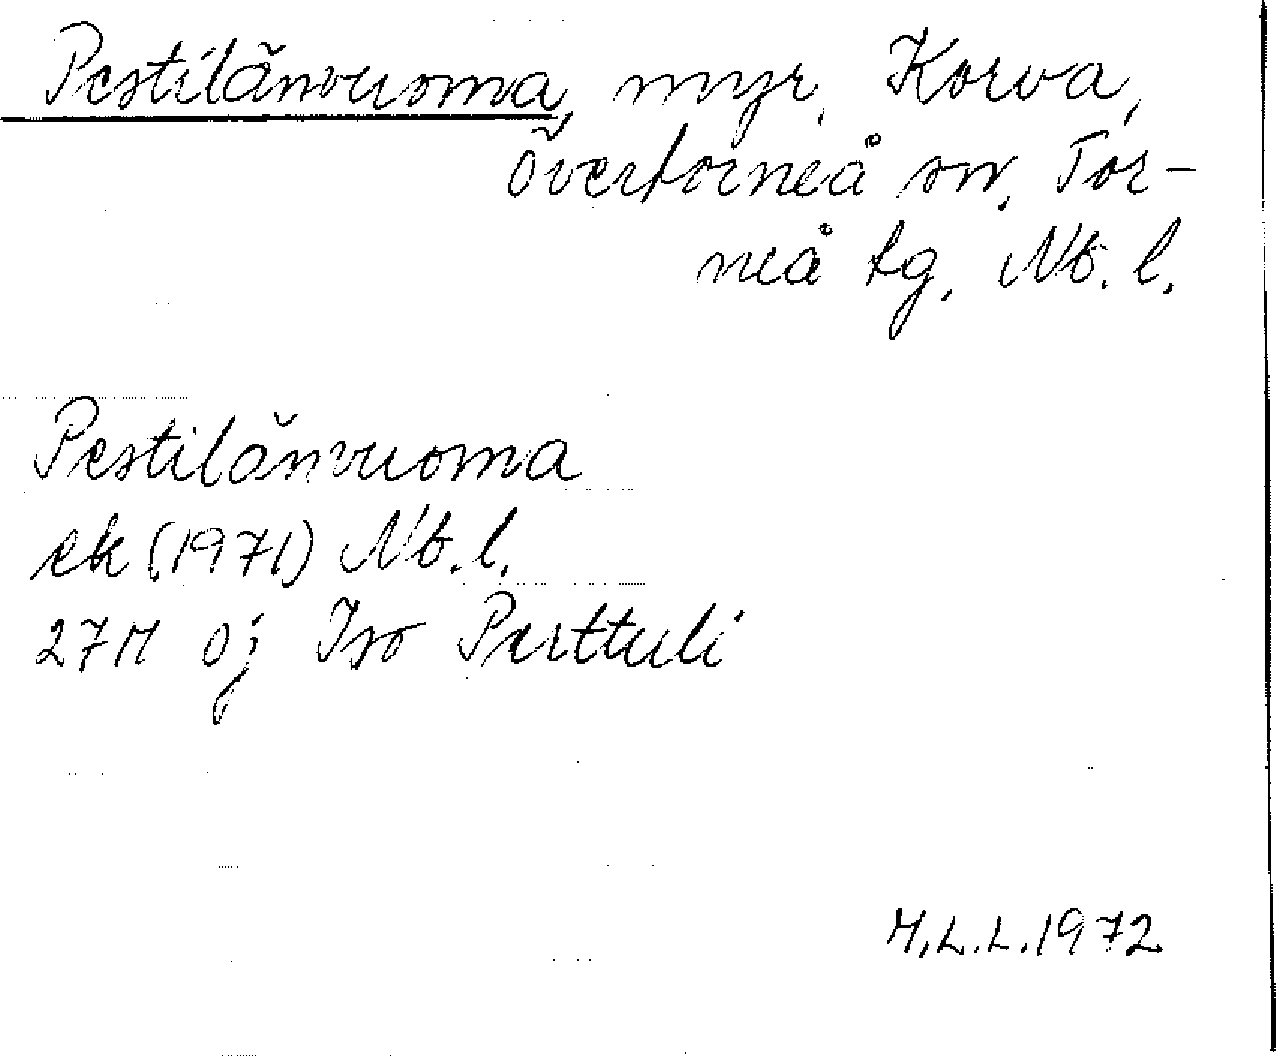 Pestilänvuoma, myr, Korva,
Övertorneå sn, Tor-
neå tg, Nb. l.
Pestilänvuoma
ek (1971) Nb. l.
27M 0j Iso Perttuli
M.L.L. 1972